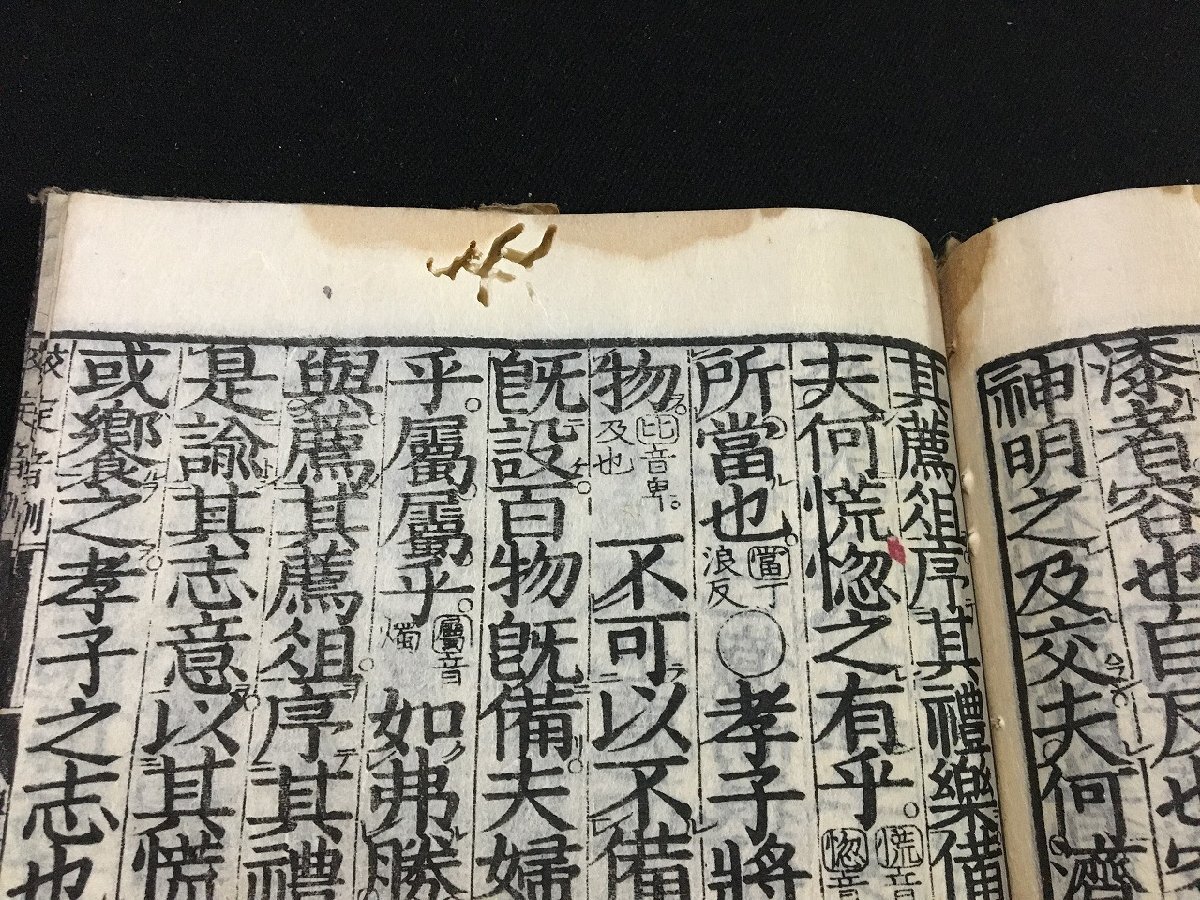 漆者容也自反也
神明之及交夫何濟
其薦俎序其禮樂備
夫何慌惚之有乎 慌音 惚音
所當也 當丁浪反 ○ 孝子將
物 比音卑及也 不可以不備
既設百物既備夫婦
乎屬屬乎 屬音燭 如弗勝
與薦其薦俎序其禮
是諭其志意以其慌
或饗之孝子之志也